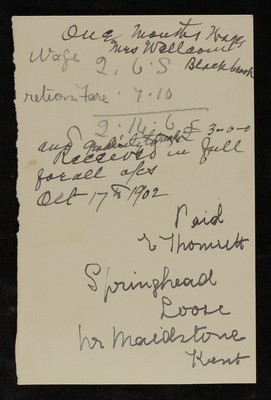 One Months Wages
Mrs Wellcome
Wage 2. 6. 8 Blackbrook
return Fare . 7. 10
£ 2. 14. 6
and 3-0-0
Received in full
for all a/cs
Oct 17th 1902
Paid
E Thomsett
Springhead
Loose
Nr Maidstone
Kent